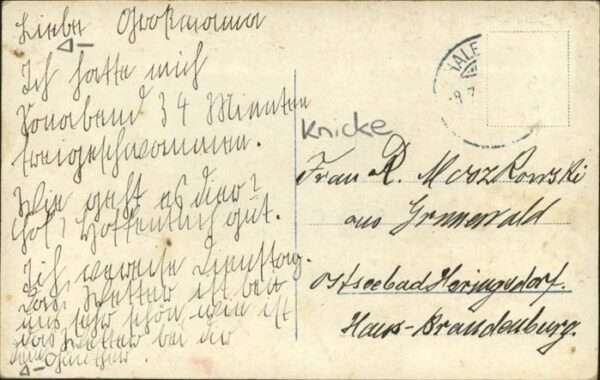 Liebe Großmama
Ich hatte mich
Sonabend 34 Minuten
freigeschwommen.
Wie geht es dier?
Hoffentlich gut.
Ich verreise Dienstag.
Das Wetter ist bei
uns sehr schön wie ist
das Wetter bei dir
Günther.
HALE
Knicke
Frau R. Moszkowski
aus Grunewald
Ostseebad Heringsdorf.
Haus-Brandenburg.